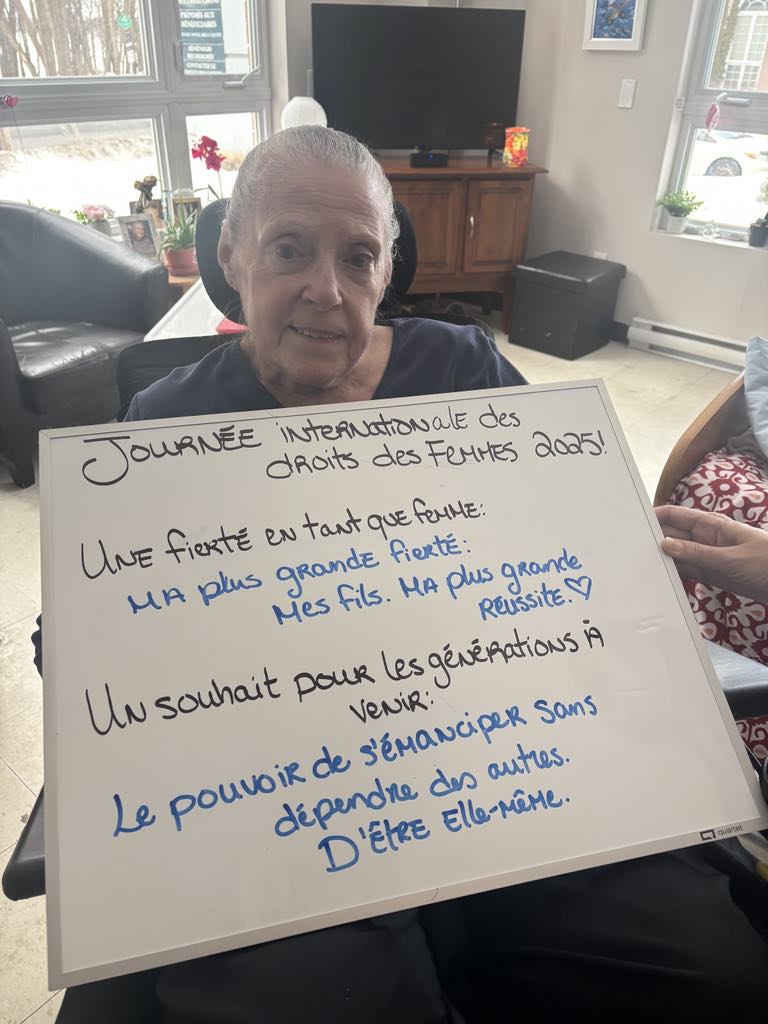 PRÉPOSÉS AUX
BÉNÉFICIAIRES
BÉNÉVOLES
RECHERCHÉS
CONTACTEZ LE
JOURNÉE INTERNATIONALE des
droits des FEMMES 2025!
UNE fierté en tant que femme:
MA plus grande fierté:
Mes fils. MA plus grande
RÉUSSITE.♡
UN souhait pour les générations À
VENIR:
Le pouvoir de s'ÉMANCIPER sans
dépendre des autres.
D'ÊTRE Elle-même.
quartet